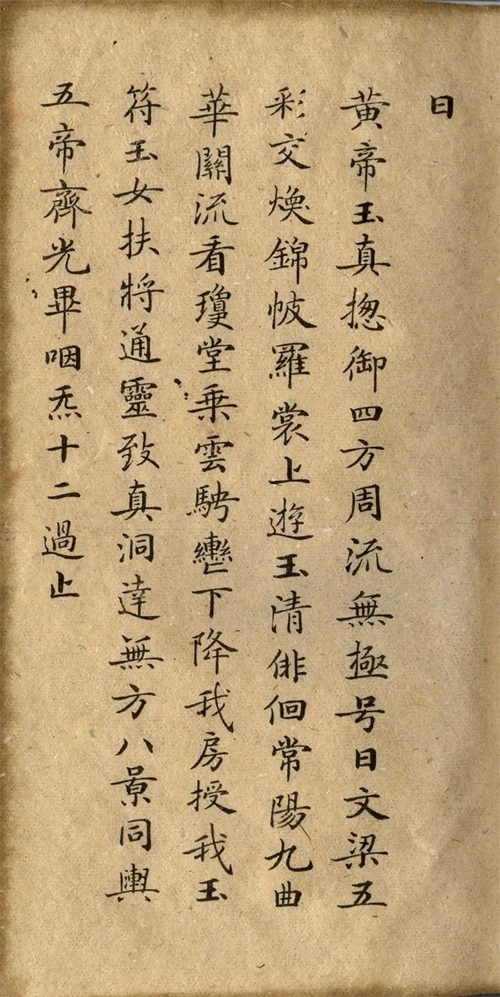 曰
黄帝玉真揔御四方周流無極号曰文梁五
彩交煥錦帔羅裳上遊玉清俳佪常陽九曲
華關流看瓊堂乗雲騁轡下降我房授我玉
符玉女扶将通靈致真洞達無方八景同輿
五帝齊光畢咽炁十二過止